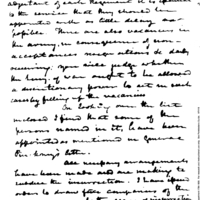 adjutant of each Regiment it is essential
to the service that they should be
appointed with as little delay as
possible. There are also vacancies in
the army, in consequence of non-
acceptances resignations & daily
occurring, you will judge whether
the Secy. of War ought to be allowed
a discretionary power to act in such
cases by filling up the vacancies
In looking over the list
enclosed I find that some of the
persons named in it, have been
appointed as mentioned in General
King's letter.
All necessary arrangements
have been made and are making to
subdue the insurrection. I have
order to draw three companies of the